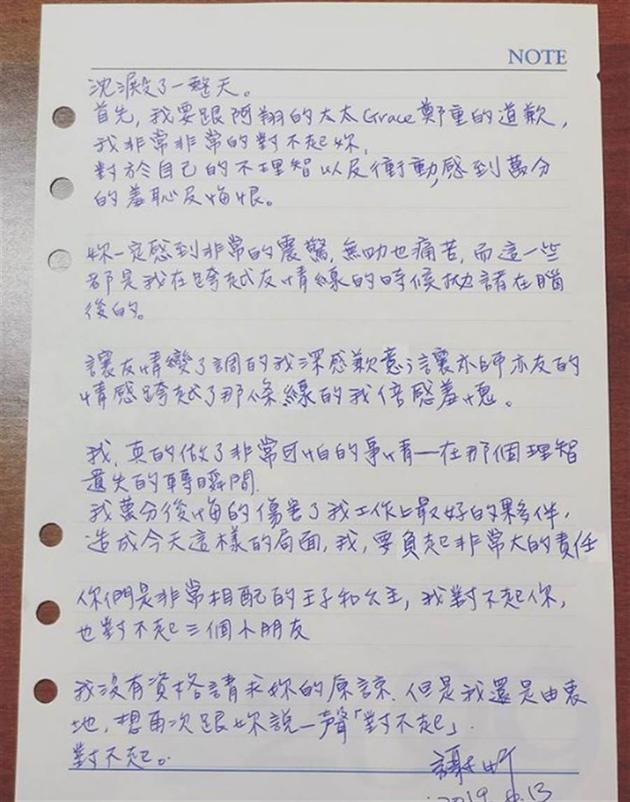 NOTE
沈澱了一整天。
首先，我要跟阿翔的太太Grace鄭重的道歉，
我非常非常的對不起妳，
對於自己的不理智以及衝動，感到萬分
的羞恥及悔恨。
妳一定感到非常的震驚，無助也痛苦，而這一些
都是我在跨越友情線的時候拋諸在腦
後的。
讓友情變了調的我深感歉意；讓亦師亦友的
情感跨越了那條線的我倍感羞愧。
我，真的做了非常可怕的事情—在那個理智
遺失的轉瞬間.
我萬分後悔的傷害了我工作上最好的夥伴，
造成今天這樣的局面，我，要負起非常大的責任
你們是非常相配的王子和公主，我對不起你，
也對不起三個小朋友
我沒有資格請求妳的原諒. 但是我還是由衷
地，想再次跟妳說一聲「對不起」.
對不起。
謝忻
2019.6.13